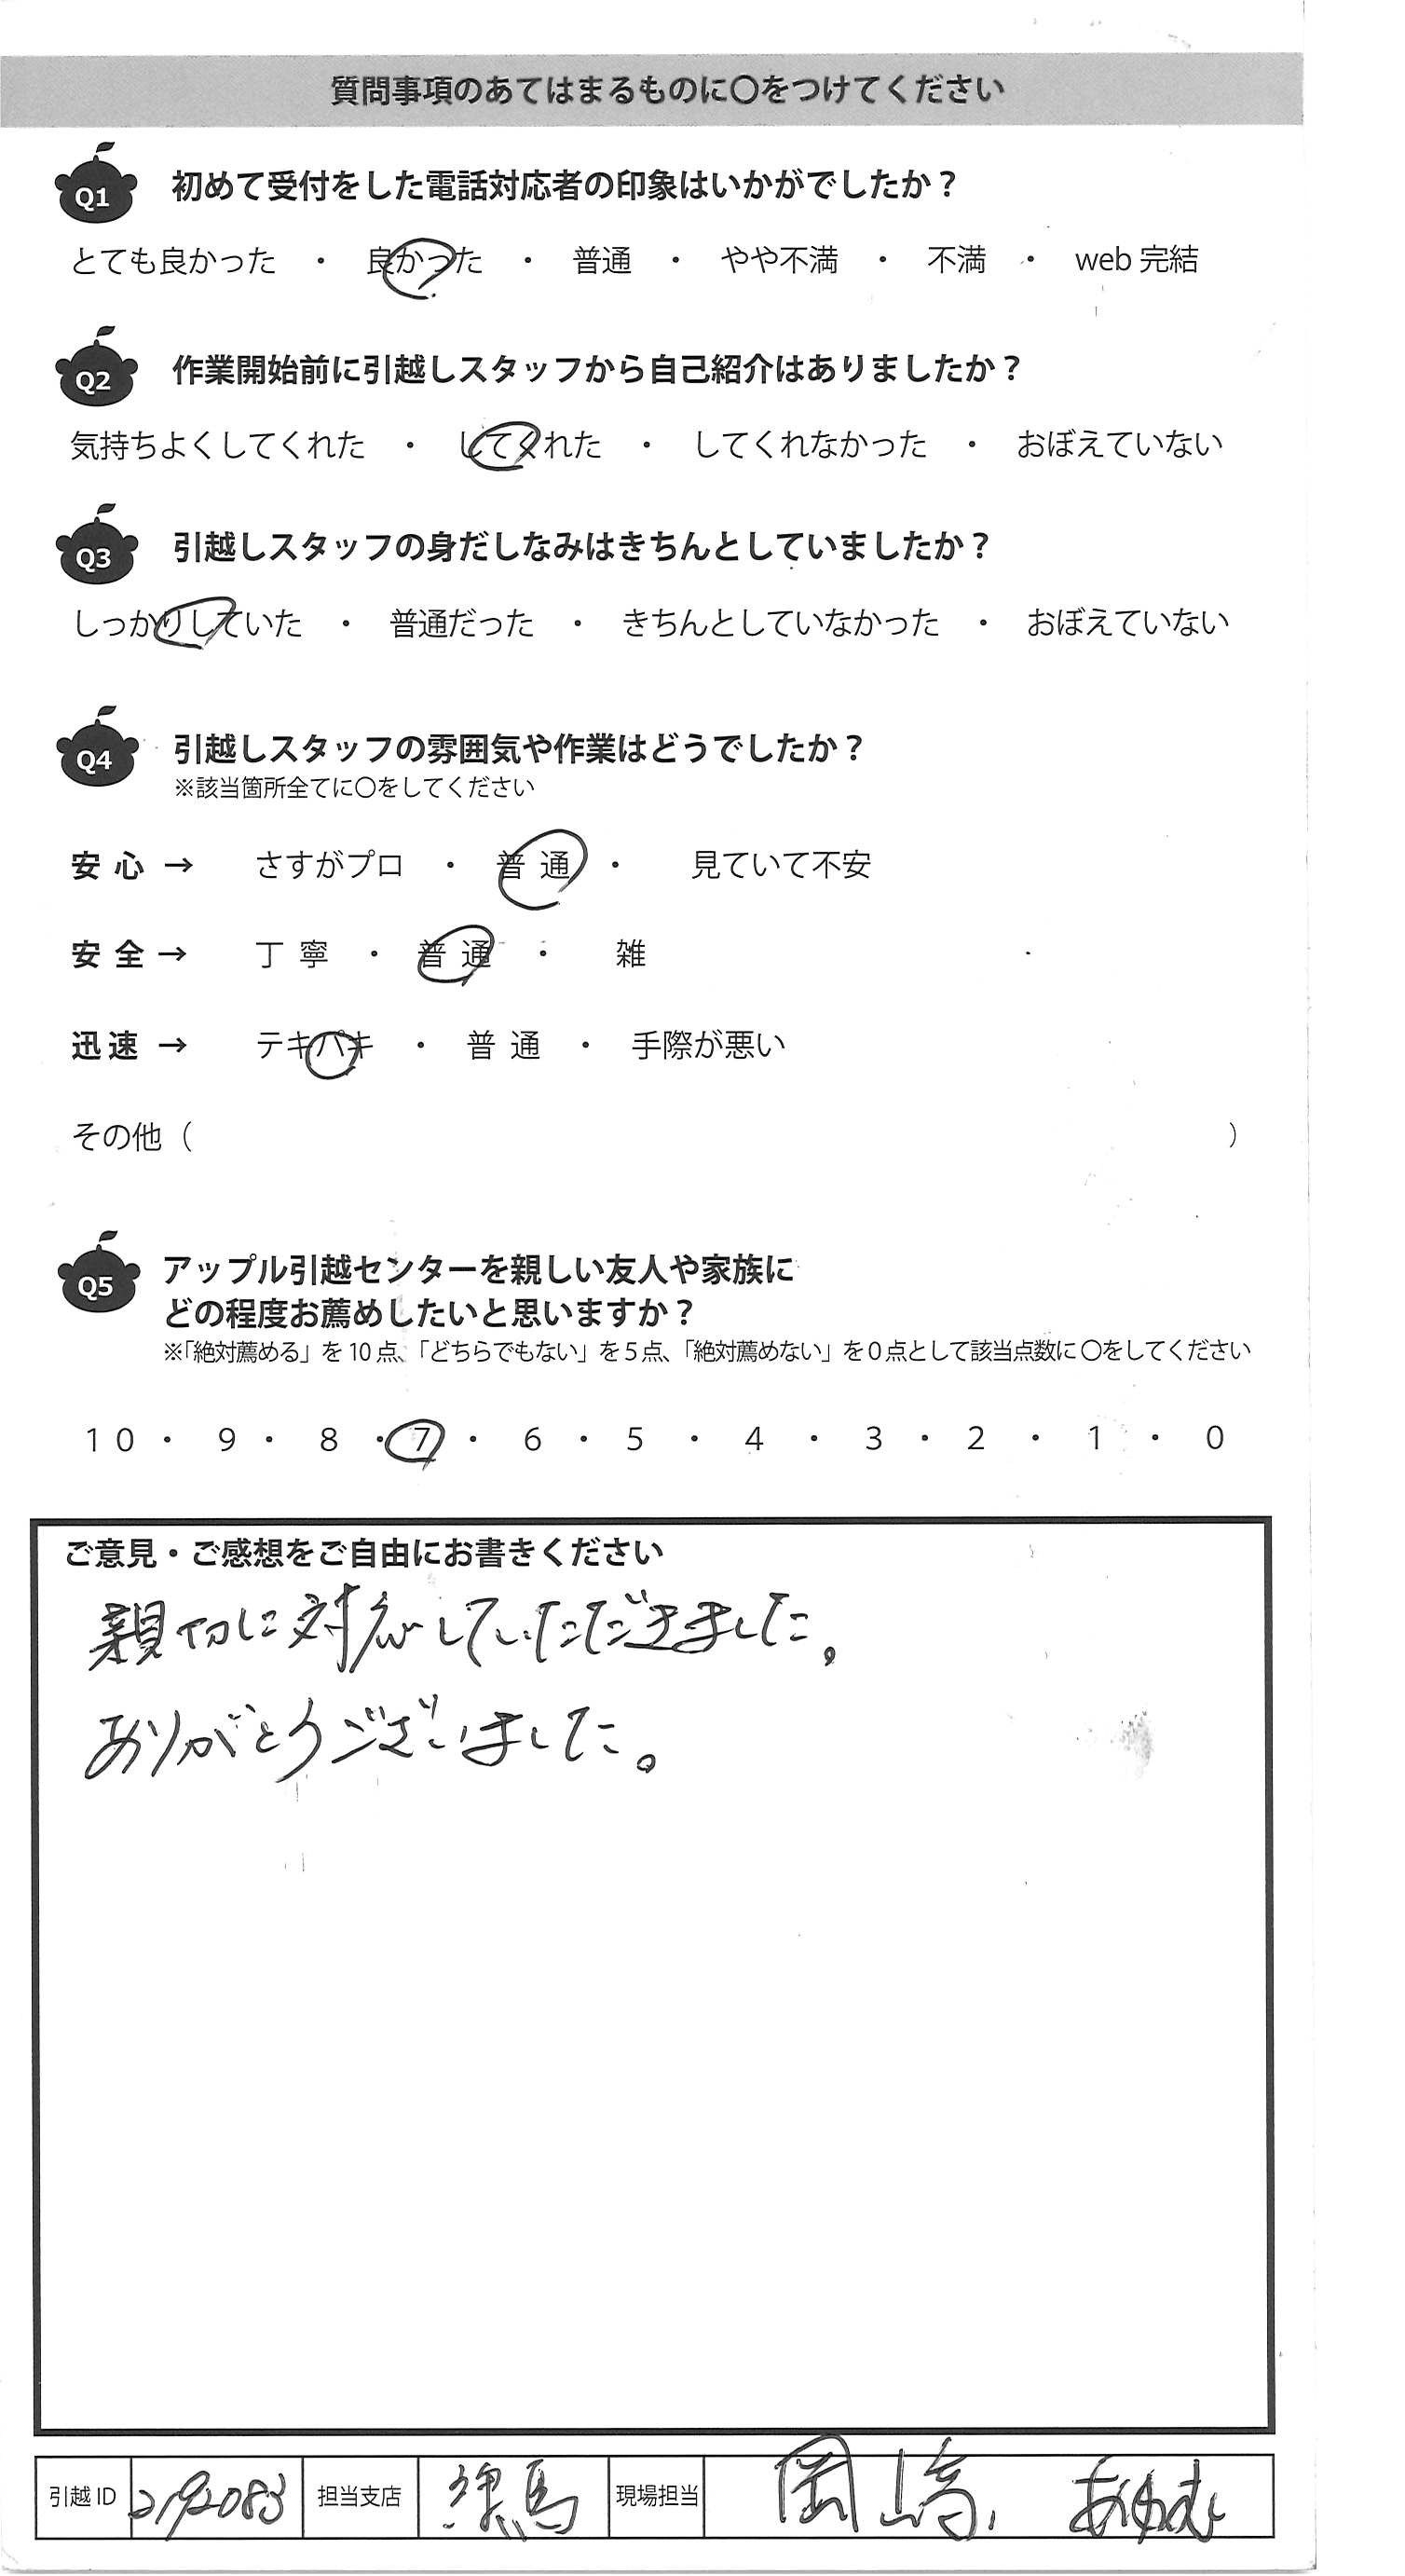 質問事項のあてはまるものに〇をつけてください
Q1 初めて受付をした電話対応者の印象はいかがでしたか？
とても良かった ・ 良かった ・ 普通 ・ やや不満 ・ 不満 ・ web 完結
Q2 作業開始前に引越しスタッフから自己紹介はありましたか？
気持ちよくしてくれた ・ してくれた ・ してくれなかった ・ おぼえていない
Q3 引越しスタッフの身だしなみはきちんとしていましたか？
しっかりしていた ・ 普通だった ・ きちんとしていなかった ・ おぼえていない
Q4 引越しスタッフの雰囲気や作業はどうでしたか？
※該当箇所全てに〇をしてください
安心 → さすがプロ ・ 普通 ・ 見ていて不安
安全 → 丁寧 ・ 普通 ・ 雑
迅速 → テキパキ ・ 普通 ・ 手際が悪い
その他（ ）
Q5 アップル引越センターを親しい友人や家族に
どの程度お薦めしたいと思いますか？
※「絶対薦める」を10点、「どちらでもない」を5点、「絶対薦めない」を0点として該当点数に〇をしてください
10 ・ 9 ・ 8 ・ 7 ・ 6 ・ 5 ・ 4 ・ 3 ・ 2 ・ 1 ・ 0
ご意見・ご感想をご自由にお書きください
親切に対応していただきました。
ありがとうございました。
引越ID 2192083 担当支店 練馬 現場担当 岡崎